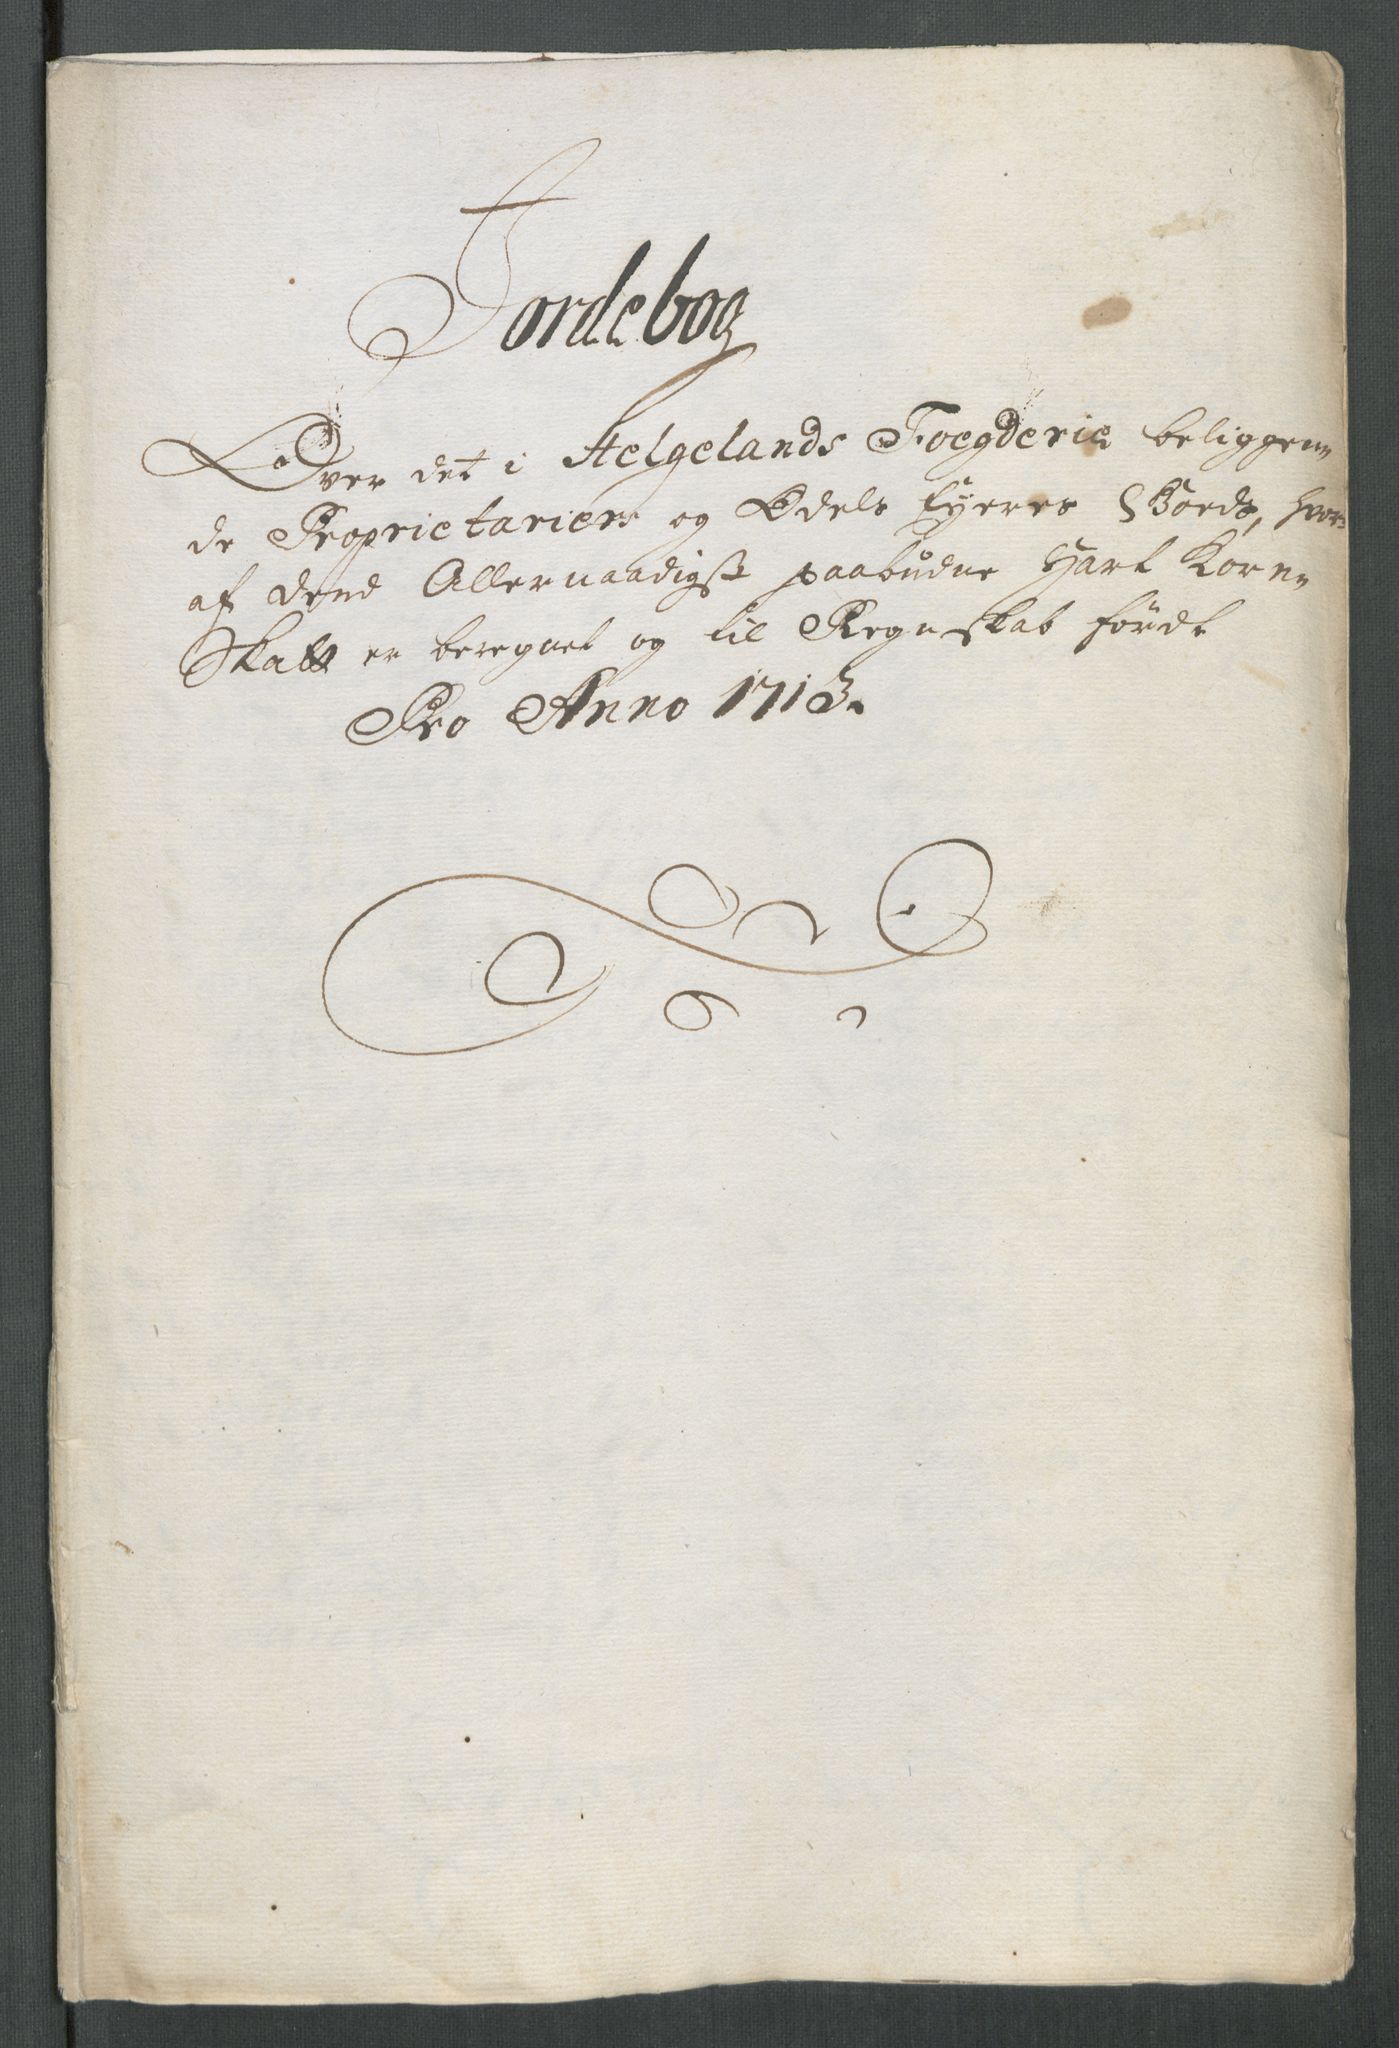 Jordebog
Over det i Helgelands Foegderie beliggen-
de Proprietariers og Odels Eyeres Goeds, hvor-
af dend Allernaadigst paabudne Hart Korn-
Skatt er beregnet og til Regnskab fördt
Pro Anno 1713.